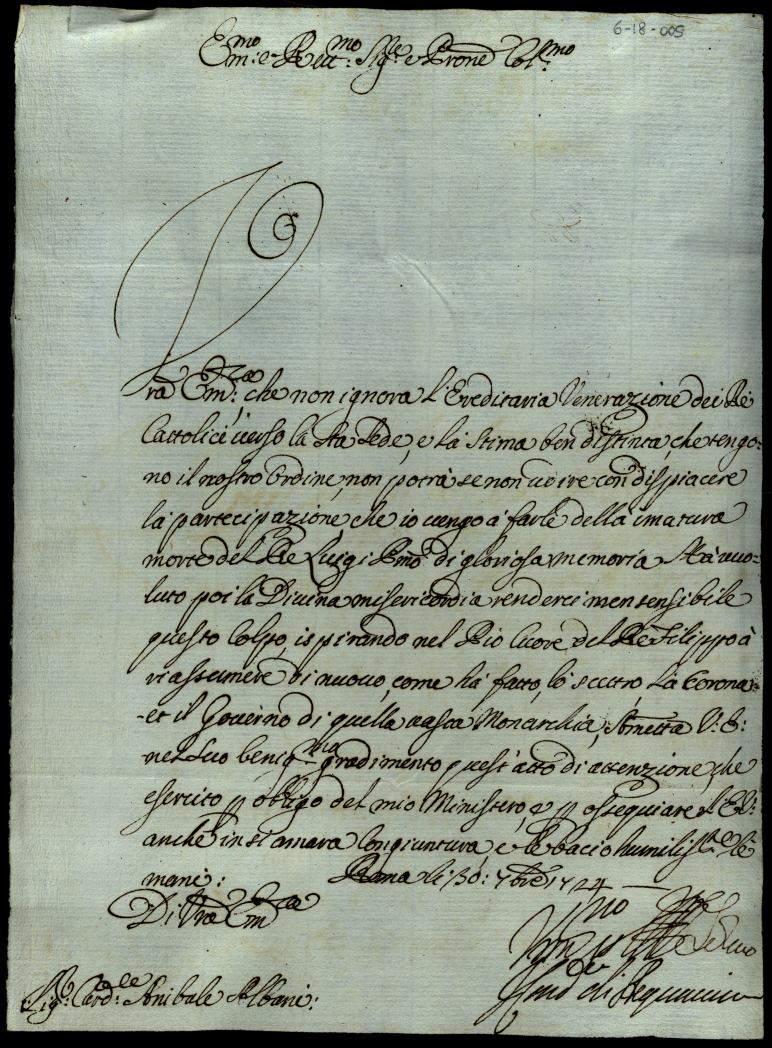 6-18-005
Em.mo e Reu.mo Sig.re e Prone Col.mo
Vra Em.za che non ignora l'Ereditaria Venerazione dei Ré
Cattolici uerso la Sta Sede, e la Stima ben distinta, che tengo=
no il nostro Ordine, non potrà se non udire con dispiacere
la partecipazione, che io uengo à farle della imatura
morte del Ré Luigi Pmo di gloriosa memoria. Hà uuo=
luto poi la Diuina misericordia renderci men sensibile
questo Colpo, ispirando nel Pio Cuore del Ré Filippo à
riassumere di nuouo, come hà fatto, lo scettro, la Corona,
et il Gouerno di quella uasta Monarchia, Ametta V: E:
nel suo benig.mo gradimento quest'atto di attenzione, che
esercito p obligo del mio Ministero, e p ossequiare l'E.V:
anche in sì amara Congiuntura, e le bacio humilis.te le
mani: Roma li 30: 7bre 1724
Di Vra Em.za
Sig.r Card.le Anibale Albani: